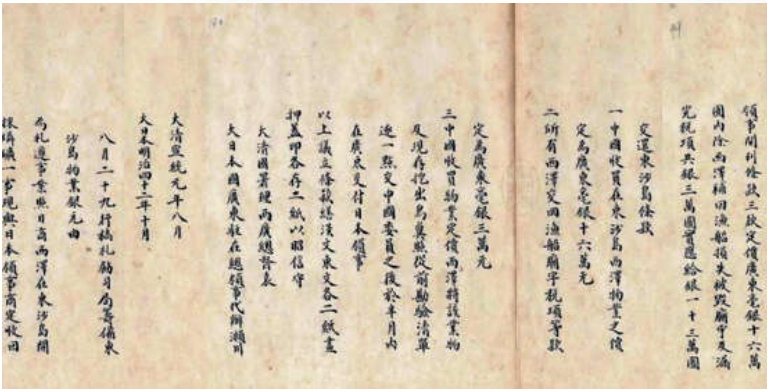 領事開列條款三款定價廣東毫銀十六萬
圓內除西澤補回漁船損失被毀廟宇及漏
完稅項共銀三萬圓實應給銀一十三萬圓
交還東沙島條款
一中國收買在東沙島西澤物業之價
定為廣東毫銀十六萬元
二所有西澤交回漁船廟宇稅項等款
定為廣東毫銀三萬元
三中國收買物業定價西澤將該業物
及現存挖出鳥糞照從前勘驗清單
逐一點交中國委員之後於半月內
在廣東交付日本領事
以上議立條款繕漢文東文各二紙畫
押蓋印各存二紙以昭信守
大清國署理兩廣總督袁
大日本國廣東駐在總領事代辦瀨川
大清宣統元年八月
大日本明治四十二年十月
八月二十九行稿札飭司局籌備東
沙島物業銀元由
為札遵事案照日商西澤在東沙島開
採燐礦一事現與日本領事商定收回